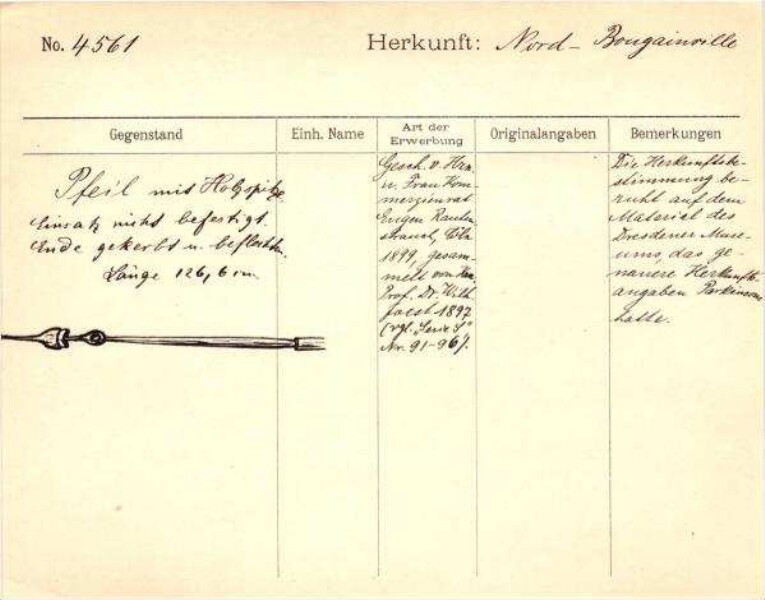 No. 4561
Herkunft: Nord-Bougainville
Gegenstand
Einh. Name
Art der Erwerbung
Originalangaben
Bemerkungen
Pfeil mit Holzspitze.
Einsatz nicht befestigt.
Ende gekerbt u. beflochten.
Länge 126,6 cm.
Gesch. v. Hrn.
u. Frau Kom-
merzienrat
Eugen Rauten-
strauch, Cöln
1899, gesam-
melt von
Prof. Dr. Wilh.
Joest 1897
(vgl. "Serie S"
Nr. 91-96).
Die Herkunftsbe-
stimmung be-
ruht auf dem
Material des
Dresdener Muse-
ums, das ge-
nauere Herkunfts-
angaben Parkinsons
hatte.